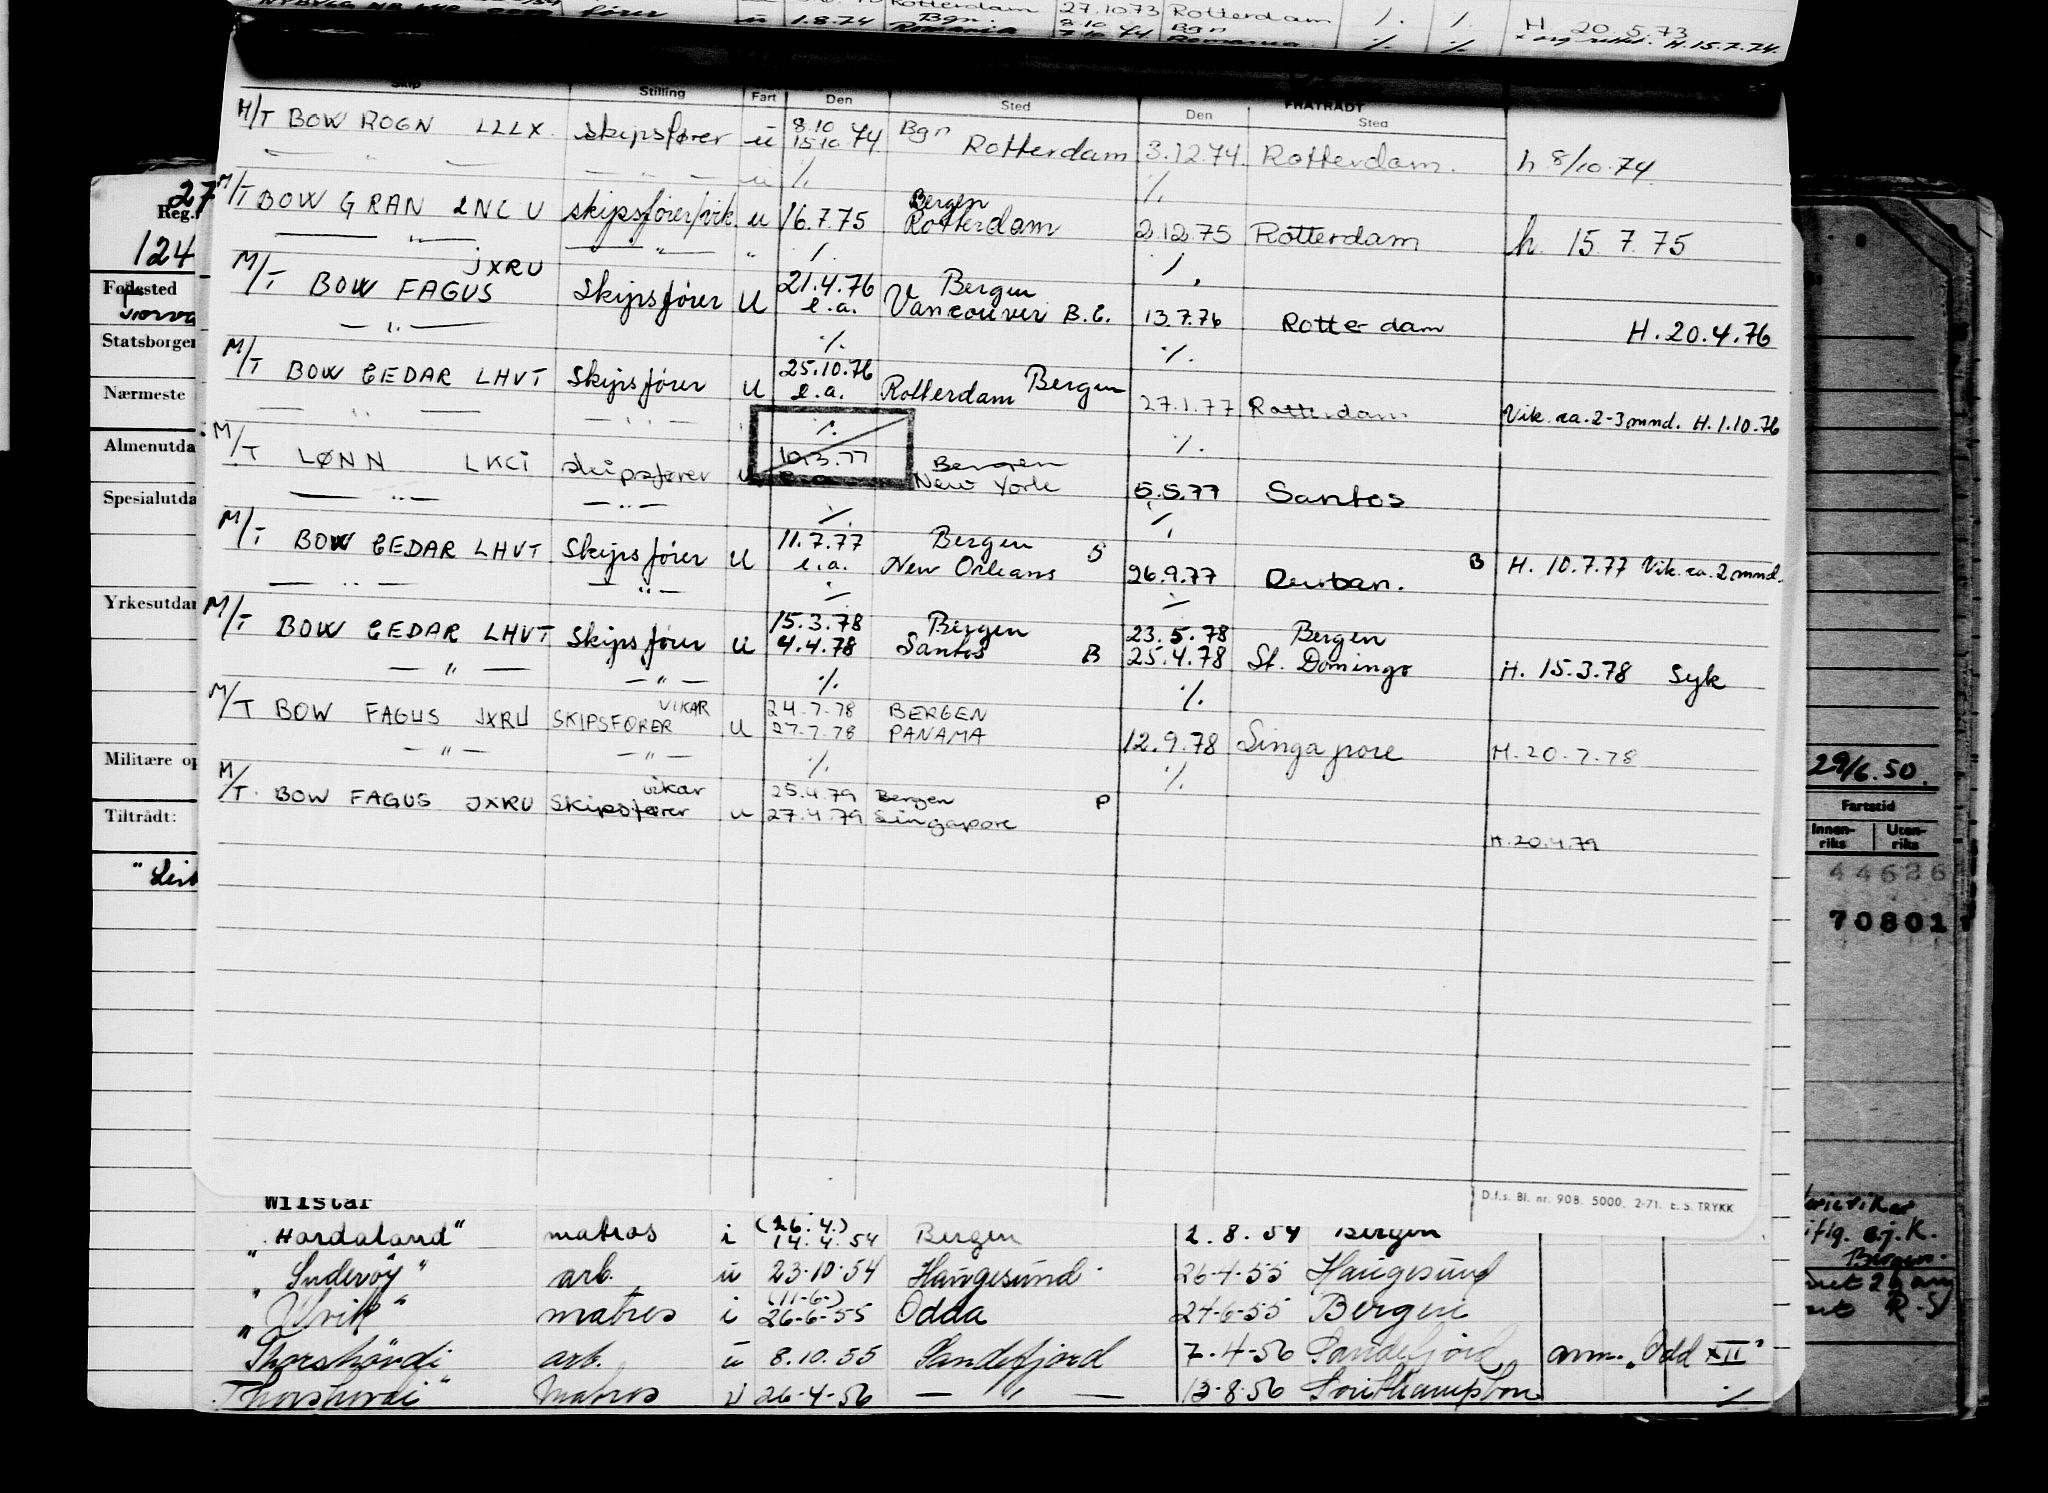 Rotterdam 27.10.73 Rotterdam
fører u 1.8.74 Bgn. Bgn % % H 20.5.73
H.15.7.74.
Skip Stilling Fart Den Sted Den FRATRÅDT Sted
M/T BOW ROGN LLLX skipsfører u 8.10 15.10.74 Bgn Rotterdam 3.12.74. Rotterdam. h 8/10.74
— " — — " — u % %
M/T BOW GRAN LNCU skipsfører/vik. u 16.7.75 Bergen Rotterdam 2.12.75 Rotterdam h. 15.7.75
— " — — " — " % %
M/T BOW FAGUS JXRU Skipsfører U 21.4.76 Bergen
e.a. Vancouver B.C. 13.7.76 Rotterdam H.20.4.76
— " — % %
M/T BOW CEDAR LHVT Skipsfører U 25.10.76 Bergen
e.a. Rotterdam 27.1.77 Rotterdam Vik. ca. 2-3 mnd. H.1.10.76
— " — — " — % %
M/T LØNN LKCI skipsfører u 10.3.77 Bergen
e.a. New York 5.5.77 Santos
— " — — " — % %
M/T BOW CEDAR LHVT Skipsfører U 11.7.77 Bergen S
e.a. New Orleans 26.9.77 Durban. B H. 10.7.77 Vik. ca. 2 mnd.
— " — — " — % %
M/T BOW CEDAR LHVT Skipsfører U 15.3.78 Bergen 23.5.78 Bergen
4.4.78 Santos B 25.4.78 St. Domingo H. 15.3.78 Syk
— " — — " — % %
M/T BOW FAGUS JXRU SKIPSFØRER VIKAR U 24.7.78 BERGEN
27.7.78 PANAMA 12.9.78 Singapore H.20.7.78
— " — — " — % %
M/T. BOW FAGUS JXRU Skipsfører vikar u 25.4.79 Bergen P
27.4.79 Singapore H.20.4.79
D.f.s. Bl. nr. 908. 5000. 2-71. E.S. TRYKK
27
Reg.
124
Fødested
Statsborger
Nærmeste
Almenutda
Spesialutda
Yrkesutdan
Militære op
Tiltrådt:
29/6.50.
Fartstid
Innen-riks Uten-riks
44626
70801
Wilstar
"Hordaland" matros i (26.4.) 14.4.54 Bergen 2.8.54 Bergen
"Suderøy" arb. u 23.10.54 Haugesund 26-4-55 Haugesund
"Ulvik" matros i (11-6-) 26-6-55 Odda 24-6-55 Bergen
"Thorshövdi arb. u 8.10.55 Sandefjord 7.4-56 Sandefjord anm. "Odd XII"
"Thorshövdi" Matros u 26-4-56 — " — 13-8-56 Southampton %
Bergen.